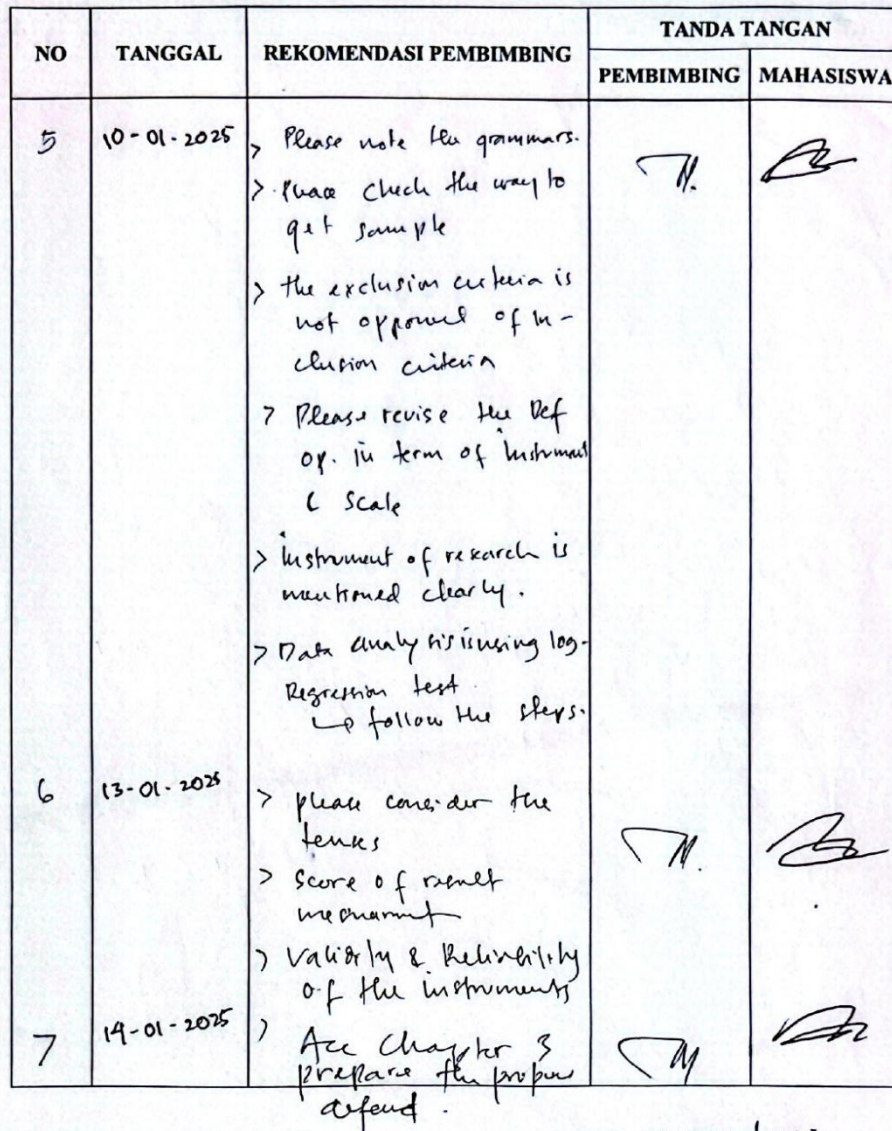 NO TANGGAL REKOMENDASI PEMBIMBING TANDA TANGAN
PEMBIMBING MAHASISWA
5 10-01-2025 > Please note the grammars.
> Please check the way to
get sample
> the exclusion criteria is
not of in-
clusion criteria
> Please revise the Def
op. in term of Instrument
& Scale
> instrument of research is
mentioned clearly.
> Data analysis is using log-
Regression test
↳ follow the steps.
6 13-01-2025 > please consider the
tenses
> score of result
> Validity & Reliability
of the instruments
7 14-01-2025 > Acc Chapter 3
prepare the
defend.